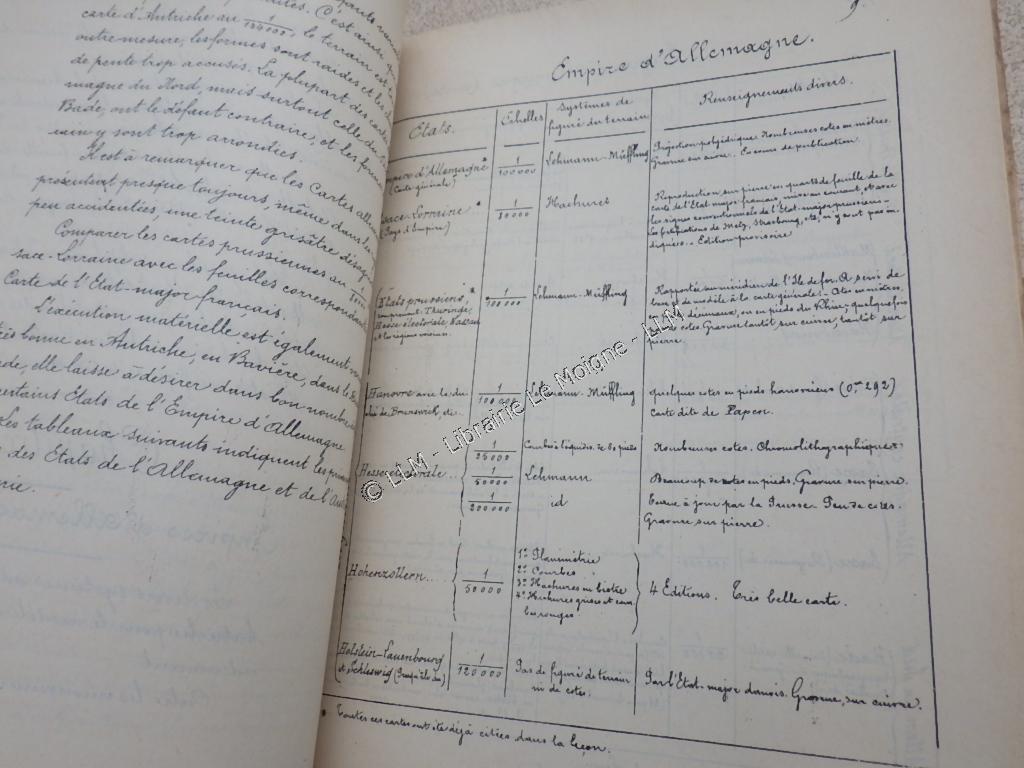 carte d'Autriche au 1/144000, le terrain est
outre mesure, les formes sont raides et les
de pente trop accusés. La plupart des cartes
magne du Nord, mais surtout celle du
Bade, ont le défaut contraire, et les formes
rain y sont trop arrondies.
Il est à remarquer que les Cartes alle
présentent presque toujours, même dans les
peu accidentées, une teinte grisâtre désag
Comparer les cartes prussiennes au
sace-Lorraine avec les feuilles correspondan
Carte de l'Etat-major français.
L'exécution matérielle est également
très bonne en Autriche, en Bavière, dans le
ède, elle laisse à désirer dans bon nombre
certains Etats de l'Empire d'Allemagne
Les tableaux suivants indiquent les
des Etats de l'Allemagne et de l'Au
rie.
9.
Empire d'Allemagne.
Etats. Echelles Systèmes de figuré du terrain Renseignements divers.
mpire d'Allemagne* 1/100000 Lehmann-Müffling Projection polyédrique. Nombreuses cotes en mètres.
(Carte générale) Gravure sur cuivre. En cours de publication.
sace-Lorraine* 1/80000 Hachures Reproduction sur pierre en quarts de feuille de la
(Pays d'Empire) carte de l'Etat major français, mis au courant, et avec
les signes conventionnels de l'Etat-major prussien-
Les fortifications de Metz, Strasbourg, etc, n'y sont pas in-
diquées. - Edition provisoire
Etats prussiens, 1/100000 Lehmann-Müffling Rapportée au méridien de l'Ile de fer. A servi de
comprenant Thuringe, base et de modèle à la carte générale. Cotes en mètres,
Hesse électorale, Nassau en pieds du Rhin, quelquefois
et les régions voisines. cotes. Gravure tantôt sur cuivre, tantôt sur
pierre.
Hanovre avec le du- 1/100000 Lehmann-Müffling Quelques cotes en pieds hanovriens (0m 292)
ché de Brunswick, etc. Carte dite de Papen.
Hesse électorale 1/25000 Courbes à l'équidis. de 60 pieds Nombreuses cotes. Chromolithographique.
1/50000 Lehmann Beaucoup de cotes en pieds. Gravure sur pierre.
1/200000 id Tenue à jour par la Prusse. Peu de cotes.
Gravure sur pierre.
Hohenzollern.... 1/50000 1° Planimétrie
2° Courbes
3° Hachures en bistre
4° Hachures grises et cour
bes rouges.
4 Editions. Très belle carte.
Holstein-Lauenbourg 1/120000 Pas de figuré de terrain Par l'Etat-major danois. Gravure, sur cuivre.
et Schleswig ni de cotes.
* Toutes ces cartes ont été déjà citées dans la leçon.
© LLM - Librairie Le Moigne - LLM